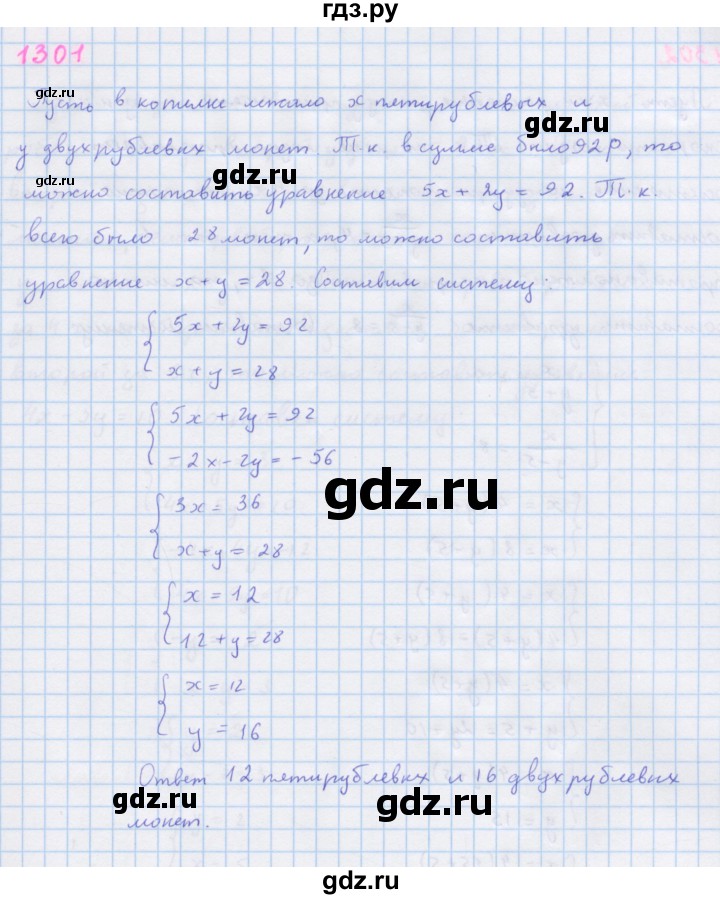 гдз.ру
1301
Пусть в копилке лежало x пятирублевых и
y двухрублевых монет Т.к. в сумме было 92р, то
можно составить уравнение 5x + 2y = 92. Т.к.
всего было 28 монет, то можно составить
уравнение x + y = 28. Составим систему:
{ 5x + 2y = 92
x + y = 28
{ 5x + 2y = 92
-2x - 2y = -56
{ 3x = 36
x + y = 28
{ x = 12
12 + y = 28
{ x = 12
y = 16
Ответ 12 пятирублевых и 16 двухрублевых
монет.
gdz.ru
gdz.ru
gdz.ru
gdz.ru
gdz.ru
gdz.ru
gdz.ru
gdz.ru
gdz.ru
gdz.ru
gdz.ru